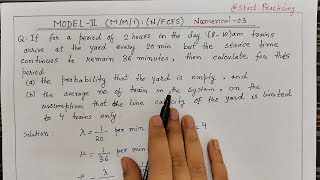 @Start Practicing
MODEL-II (M/M/1):(N/FCFS) Numerical-03
Q: If for a period of 2 hours in the day (8-10)am trains
arrive at the yard every 20 min but the service time
continues to remain 36 minutes, then calculate for this
period
(a) the probability that the yard is empty, and
(b) the average no. of trains in the system, on the
assumption that the line capacity of the yard is limited
to 4 trains only.
Solution: λ = 1/20 per min = 4
μ = 1/36 per min
λ